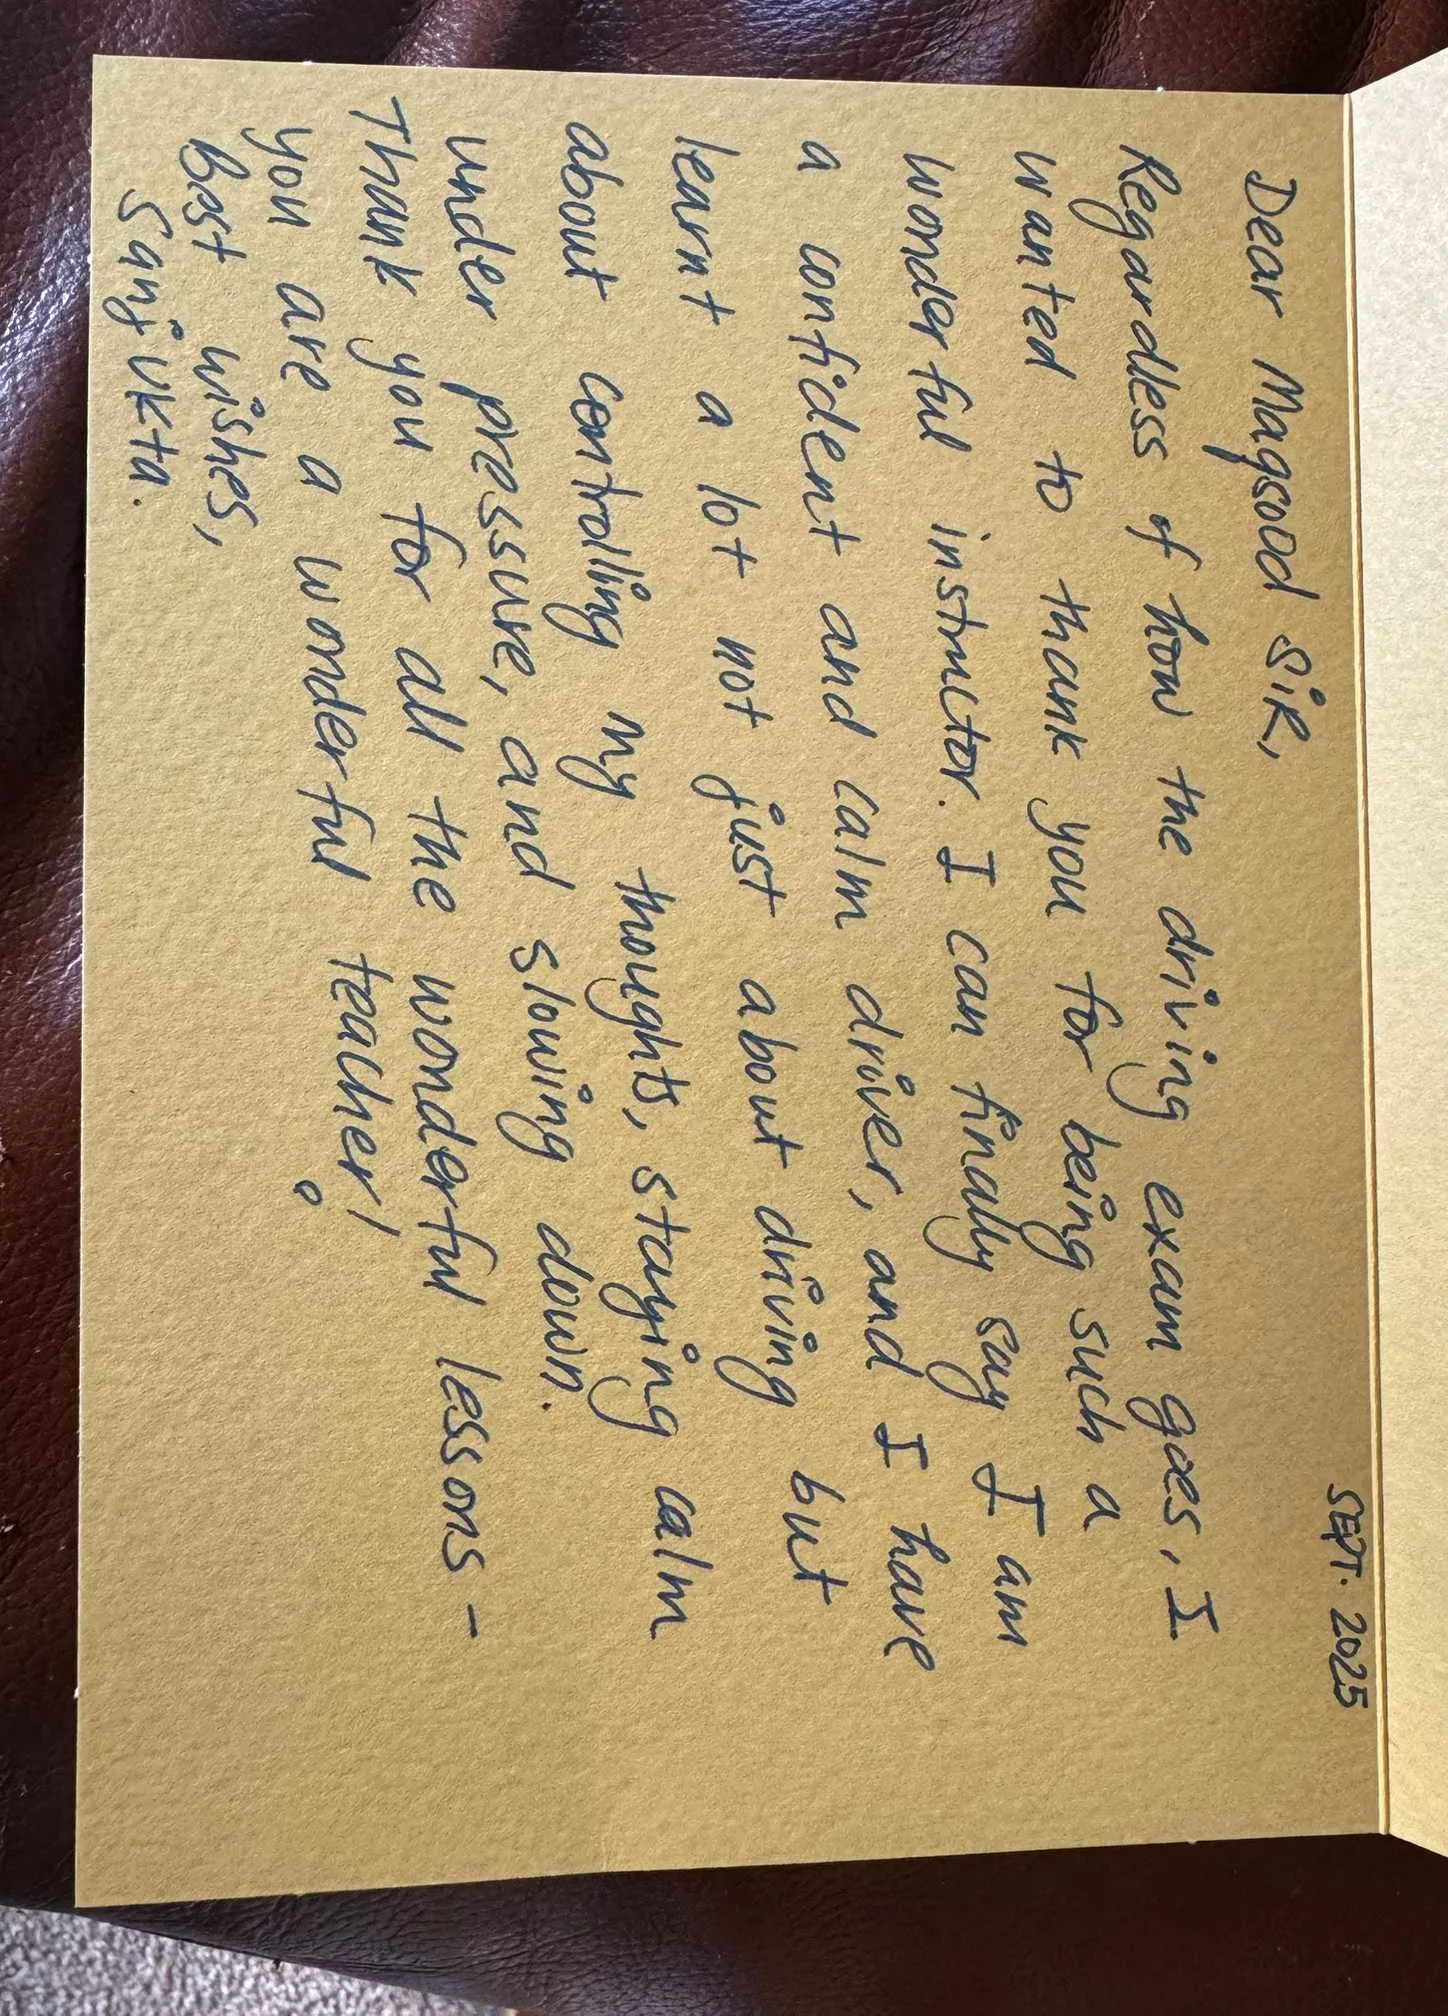 SEPT. 2025
Dear Maqsood SiR,
Regardless of how the driving exam goes, I
wanted to thank you for being such a
wonderful instructor. I can finally say I am
a confident and calm driver, and I have
learnt a lot not just about driving but
about controlling my thoughts, staying calm
under pressure, and slowing down.
Thank you for all the wonderful lessons -
you are a wonderful teacher!
Best wishes,
Sanjukta.